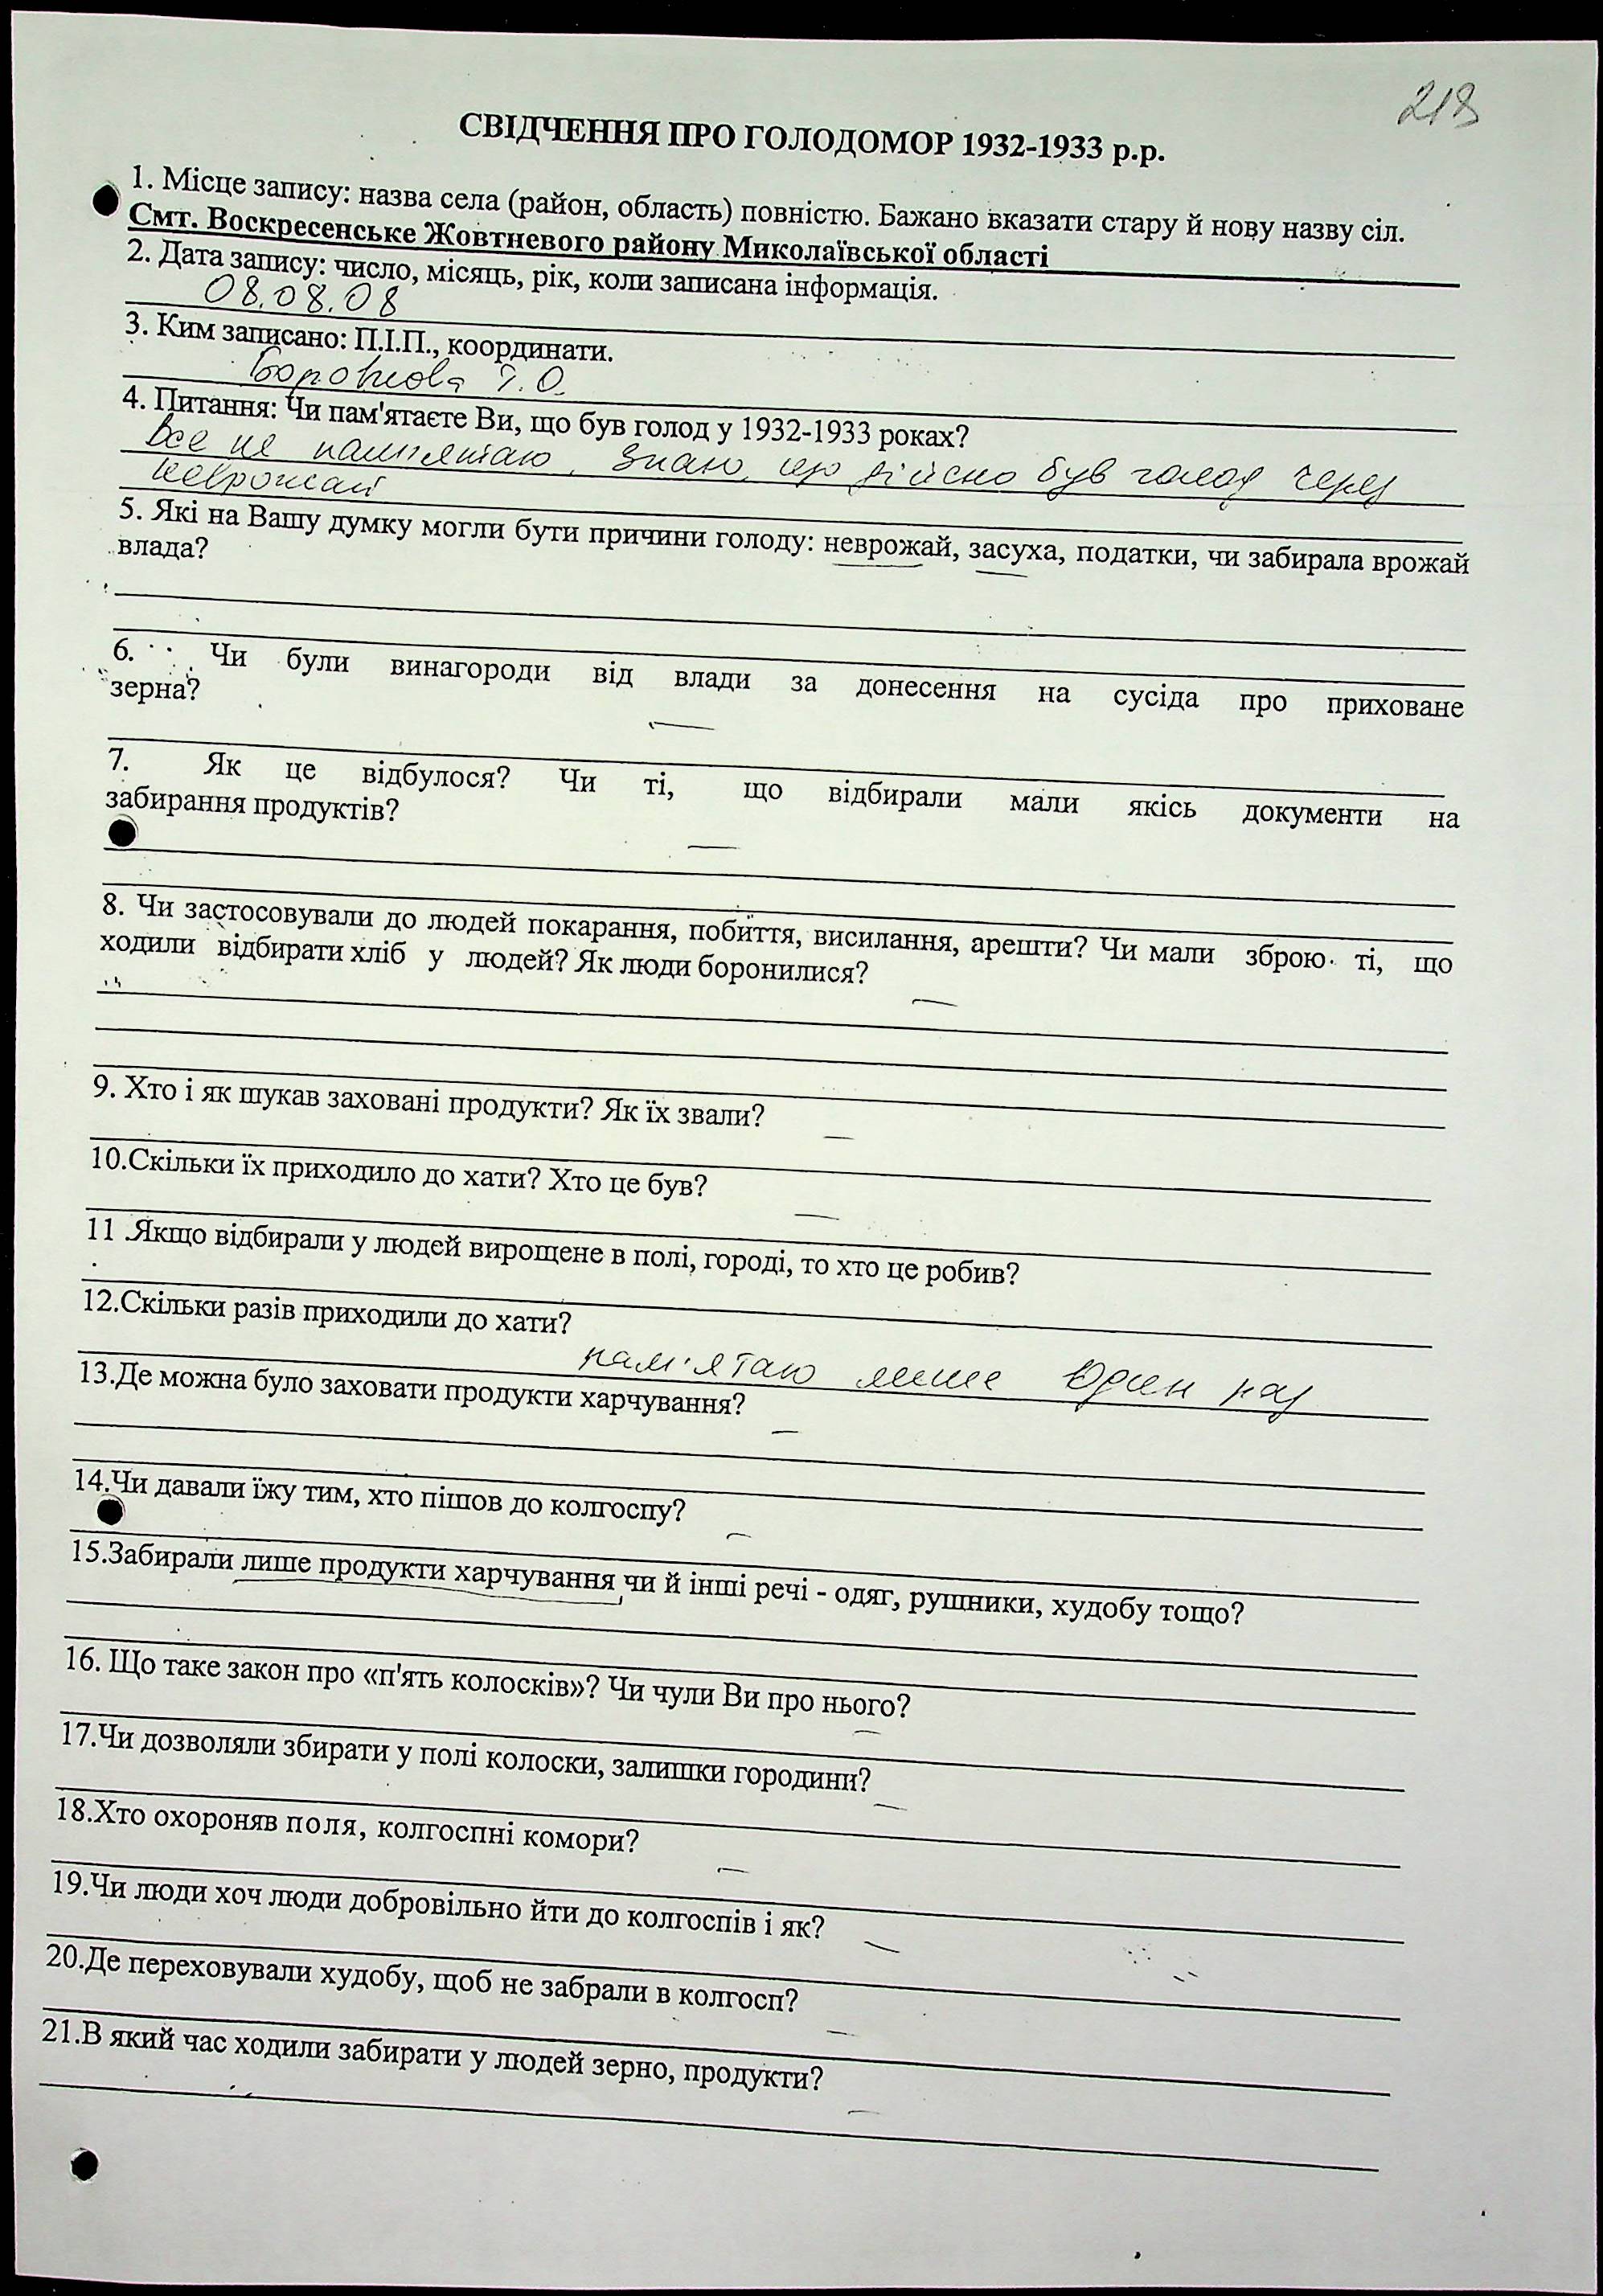 218
СВІДЧЕННЯ ПРО ГОЛОДОМОР 1932-1933 р.р.
1. Місце запису: назва села (район, область) повністю. Бажано вказати стару й нову назву сіл.
Смт. Воскресенське Жовтневого району Миколаївської області
2. Дата запису: число, місяць, рік, коли записана інформація.
08.08.08
3. Ким записано: П.І.П., координати.
Т.О.
4. Питання: Чи пам'ятаєте Ви, що був голод у 1932-1933 роках?
Все не пам'ятаю, знаю, що дійсно був голод через
неврожай
5. Які на Вашу думку могли бути причини голоду: неврожай, засуха, податки, чи забирала врожай
влада?
6. Чи були винагороди від влади за донесення на сусіда про приховане
зерна?
—
7. Як це відбулося? Чи ті, що відбирали мали якісь документи на
забирання продуктів?
—
8. Чи застосовували до людей покарання, побиття, висилання, арешти? Чи мали зброю ті, що
ходили відбирати хліб у людей? Як люди боронилися?
—
9. Хто і як шукав заховані продукти? Як їх звали?
—
10.Скільки їх приходило до хати? Хто це був?
—
11 .Якщо відбирали у людей вирощене в полі, городі, то хто це робив?
12.Скільки разів приходили до хати?
пам'ятаю лише один раз
13.Де можна було заховати продукти харчування?
—
14.Чи давали їжу тим, хто пішов до колгоспу?
—
15.Забирали лише продукти харчування чи й інші речі - одяг, рушники, худобу тощо?
16. Що таке закон про «п'ять колосків»? Чи чули Ви про нього?
—
17.Чи дозволяли збирати у полі колоски, залишки городини?
—
18.Хто охороняв поля, колгоспні комори?
—
19.Чи люди хоч люди добровільно йти до колгоспів і як?
—
20.Де переховували худобу, щоб не забрали в колгосп?
—
21.В який час ходили забирати у людей зерно, продукти?
—